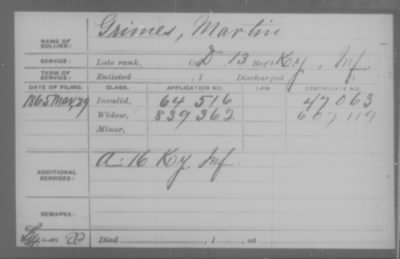 Grimes, Martin
NAME OF SOLDIER:
SERVICE: Late rank, Co. D 13 Reg't Ky. Inf.
TERM OF SERVICE: Enlisted , 1 Discharged , 1
DATE OF FILING. CLASS. APPLICATION NO. LAW. CERTIFICATE NO.
1865 May, 29 Invalid, 64 516 47 063
Widow, 839 362 607 119
Minor,
ADDITIONAL SERVICES: A. 16 Ky. Inf.
REMARKS:
Died , 1 , at